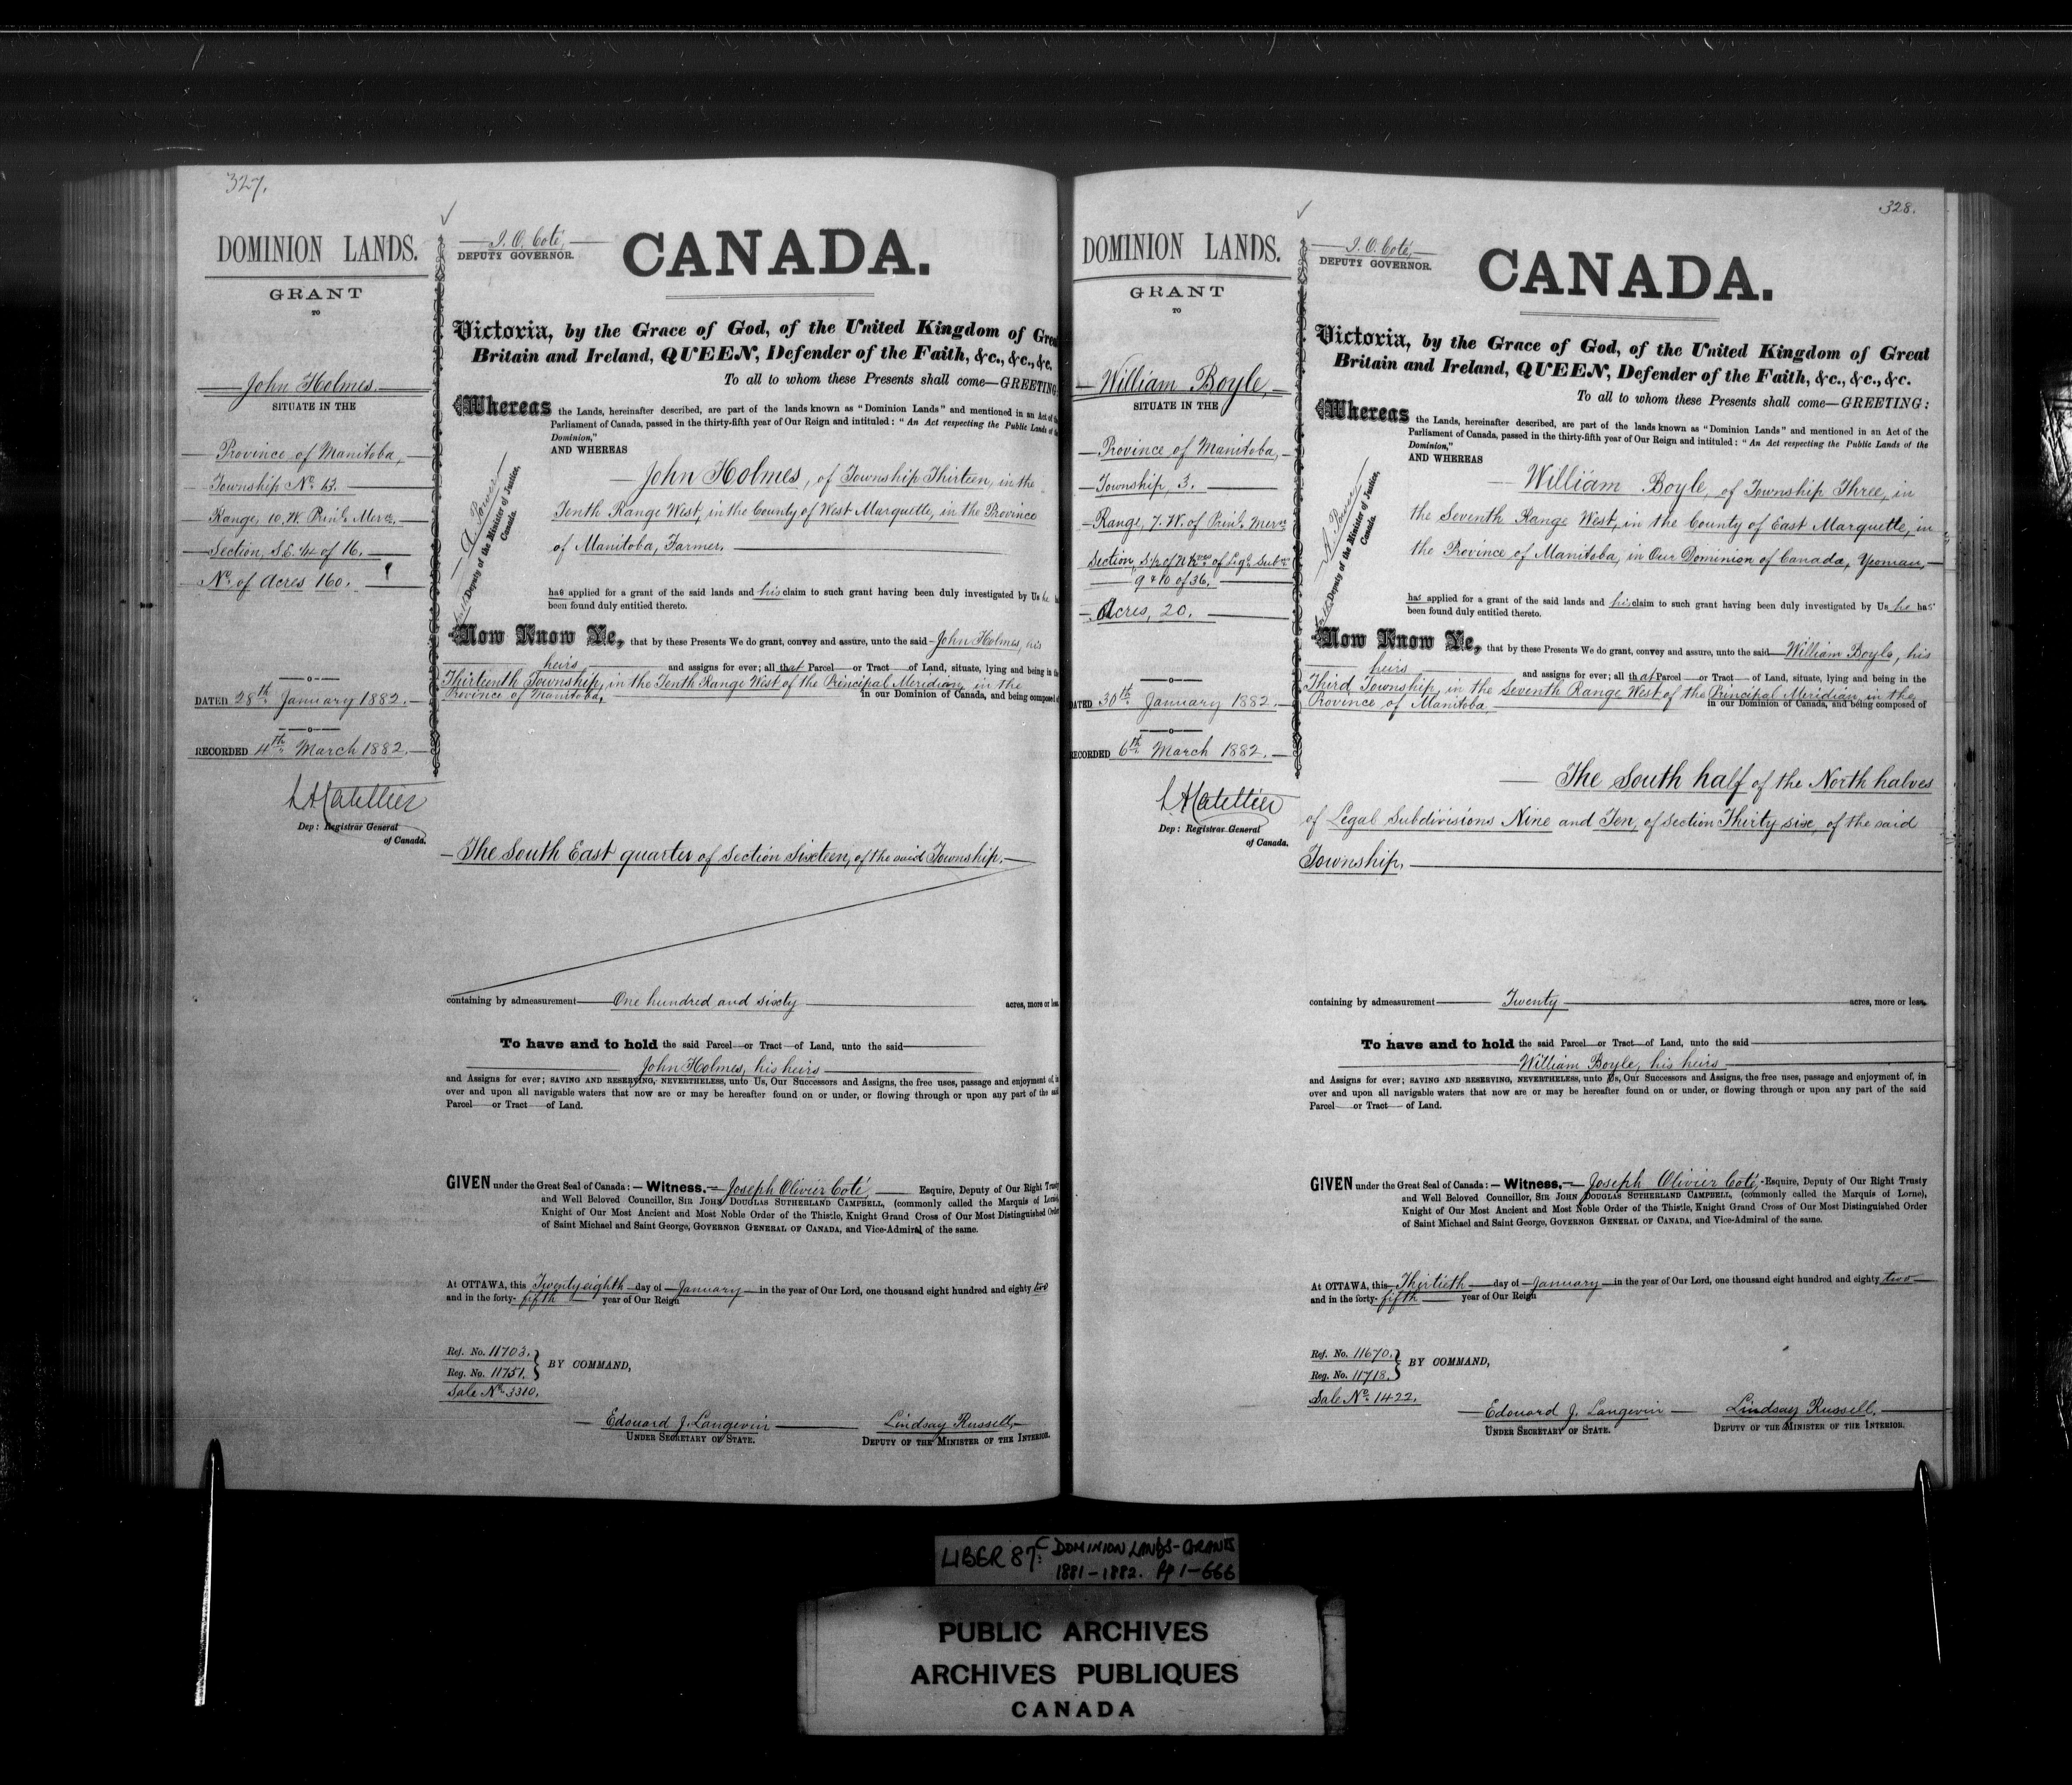 327.
DOMINION LANDS.
GRANT
TO
John Holmes.
SITUATE IN THE
Province of Manitoba,
Township No. 13.
Range, 10. W. Prinl. Mern.
Section, S.E. 1/4 of 16.
No. of Acres 160.
DATED 28th January 1882.
RECORDED 4th March 1882.
Dep: Registrar General
of Canada.
J. O. Coté,
DEPUTY GOVERNOR.
CANADA.
Victoria, by the Grace of God, of the United Kingdom of Great
Britain and Ireland, QUEEN, Defender of the Faith, &c., &c., &c.
To all to whom these Presents shall come—GREETING
A. Power
Deputy of the Minister of Justice,
Canada.
Whereas the Lands, hereinafter described, are part of the lands known as "Dominion Lands" and mentioned in an Act of the
Parliament of Canada, passed in the thirty-fifth year of Our Reign and intituled: "An Act respecting the Public Lands of the
Dominion,"
AND WHEREAS
John Holmes, of Township Thirteen, in the
Tenth Range West, in the County of West Marquette, in the Province
of Manitoba, Farmer,
has applied for a grant of the said lands and his claim to such grant having been duly investigated by Us he
been found duly entitled thereto.
Now Know Ye, that by these Presents We do grant, convey and assure, unto the said John Holmes, his
heirs and assigns for ever; all that Parcel or Tract of Land, situate, lying and being in the
Thirteenth Township, in the Tenth Range West of the Principal Meridian, in the
Province of Manitoba, in our Dominion of Canada, and being composed of
The South East quarter of Section Sixteen, of the said Township.
containing by admeasurement One hundred and sixty acres, more or less.
To have and to hold the said Parcel or Tract of Land, unto the said
John Holmes, his heirs
and Assigns for ever; SAVING AND RESERVING, NEVERTHELESS, unto Us, Our Successors and Assigns, the free uses, passage and enjoyment of, in
over and upon all navigable waters that now are or may be hereafter found on or under, or flowing through or upon any part of the said
Parcel or Tract of Land.
GIVEN under the Great Seal of Canada:—Witness.—Joseph Olivier Coté, Esquire, Deputy of Our Right Trusty
and Well Beloved Councillor, SIR JOHN DOUGLAS SUTHERLAND CAMPBELL, (commonly called the Marquis of Lorne),
Knight of Our Most Ancient and Most Noble Order of the Thistle, Knight Grand Cross of Our Most Distinguished Order
of Saint Michael and Saint George, GOVERNOR GENERAL OF CANADA, and Vice-Admiral of the same.
At OTTAWA, this Twenty eighth day of January in the year of Our Lord, one thousand eight hundred and eighty two
and in the forty-fifth year of Our Reign
Ref. No. 11703.
Reg. No. 11751.
BY COMMAND,
Sale No. 3310.
Edouard J. Langevin
UNDER SECRETARY OF STATE.
Lindsay Russell,
DEPUTY OF THE MINISTER OF THE INTERIOR.
328.
DOMINION LANDS.
GRANT
TO
William Boyle,
SITUATE IN THE
Province of Manitoba,
Township, 3.
Range, 7. W. of Prinl. Mern.
Section, S. 1/2 of N. 1/2ves of Legl. Subns.
9 & 10 of 36.
Acres, 20.
DATED 30th January 1882.
RECORDED 6th March 1882.
Dep: Registrar General
of Canada.
J. O. Coté,
DEPUTY GOVERNOR.
CANADA.
Victoria, by the Grace of God, of the United Kingdom of Great
Britain and Ireland, QUEEN, Defender of the Faith, &c., &c., &c.
To all to whom these Presents shall come—GREETING:
A. Power
Deputy of the Minister of Justice,
Canada.
Whereas the Lands, hereinafter described, are part of the lands known as "Dominion Lands" and mentioned in an Act of the
Parliament of Canada, passed in the thirty-fifth year of Our Reign and intituled: "An Act respecting the Public Lands of the
Dominion,"
AND WHEREAS
William Boyle, of Township Three, in
the Seventh Range West, in the County of East Marquette, in
the Province of Manitoba, in Our Dominion of Canada, Yeoman,
has applied for a grant of the said lands and his claim to such grant having been duly investigated by Us he has
been found duly entitled thereto.
Now Know Ye, that by these Presents We do grant, convey and assure, unto the said William Boyle, his
heirs and assigns for ever; all that Parcel or Tract of Land, situate, lying and being in the
Third Township, in the Seventh Range West of the Principal Meridian, in the
Province of Manitoba in our Dominion of Canada, and being composed of
The South half of the North halves
of Legal Subdivisions Nine and Ten, of Section Thirty six, of the said
Township.
containing by admeasurement Twenty acres, more or less.
To have and to hold the said Parcel or Tract of Land, unto the said
William Boyle, his heirs
and Assigns for ever; SAVING AND RESERVING, NEVERTHELESS, unto Us, Our Successors and Assigns, the free uses, passage and enjoyment of, in
over and upon all navigable waters that now are or may be hereafter found on or under, or flowing through or upon any part of the said
Parcel or Tract of Land.
GIVEN under the Great Seal of Canada:—Witness.—Joseph Olivier Coté, Esquire, Deputy of Our Right Trusty
and Well Beloved Councillor, SIR JOHN DOUGLAS SUTHERLAND CAMPBELL, (commonly called the Marquis of Lorne),
Knight of Our Most Ancient and Most Noble Order of the Thistle, Knight Grand Cross of Our Most Distinguished Order
of Saint Michael and Saint George, GOVERNOR GENERAL OF CANADA, and Vice-Admiral of the same.
At OTTAWA, this Thirtieth day of January in the year of Our Lord, one thousand eight hundred and eighty two
and in the forty-fifth year of Our Reign
Ref. No. 11670.
Reg. No. 11718.
BY COMMAND,
Sale No. 1422.
Edouard J. Langevin
UNDER SECRETARY OF STATE.
Lindsay Russell,
DEPUTY OF THE MINISTER OF THE INTERIOR.
LIBER 87C: DOMINION LANDS-GRANTS
1881-1882. Pp 1-666
PUBLIC ARCHIVES
ARCHIVES PUBLIQUES
CANADA